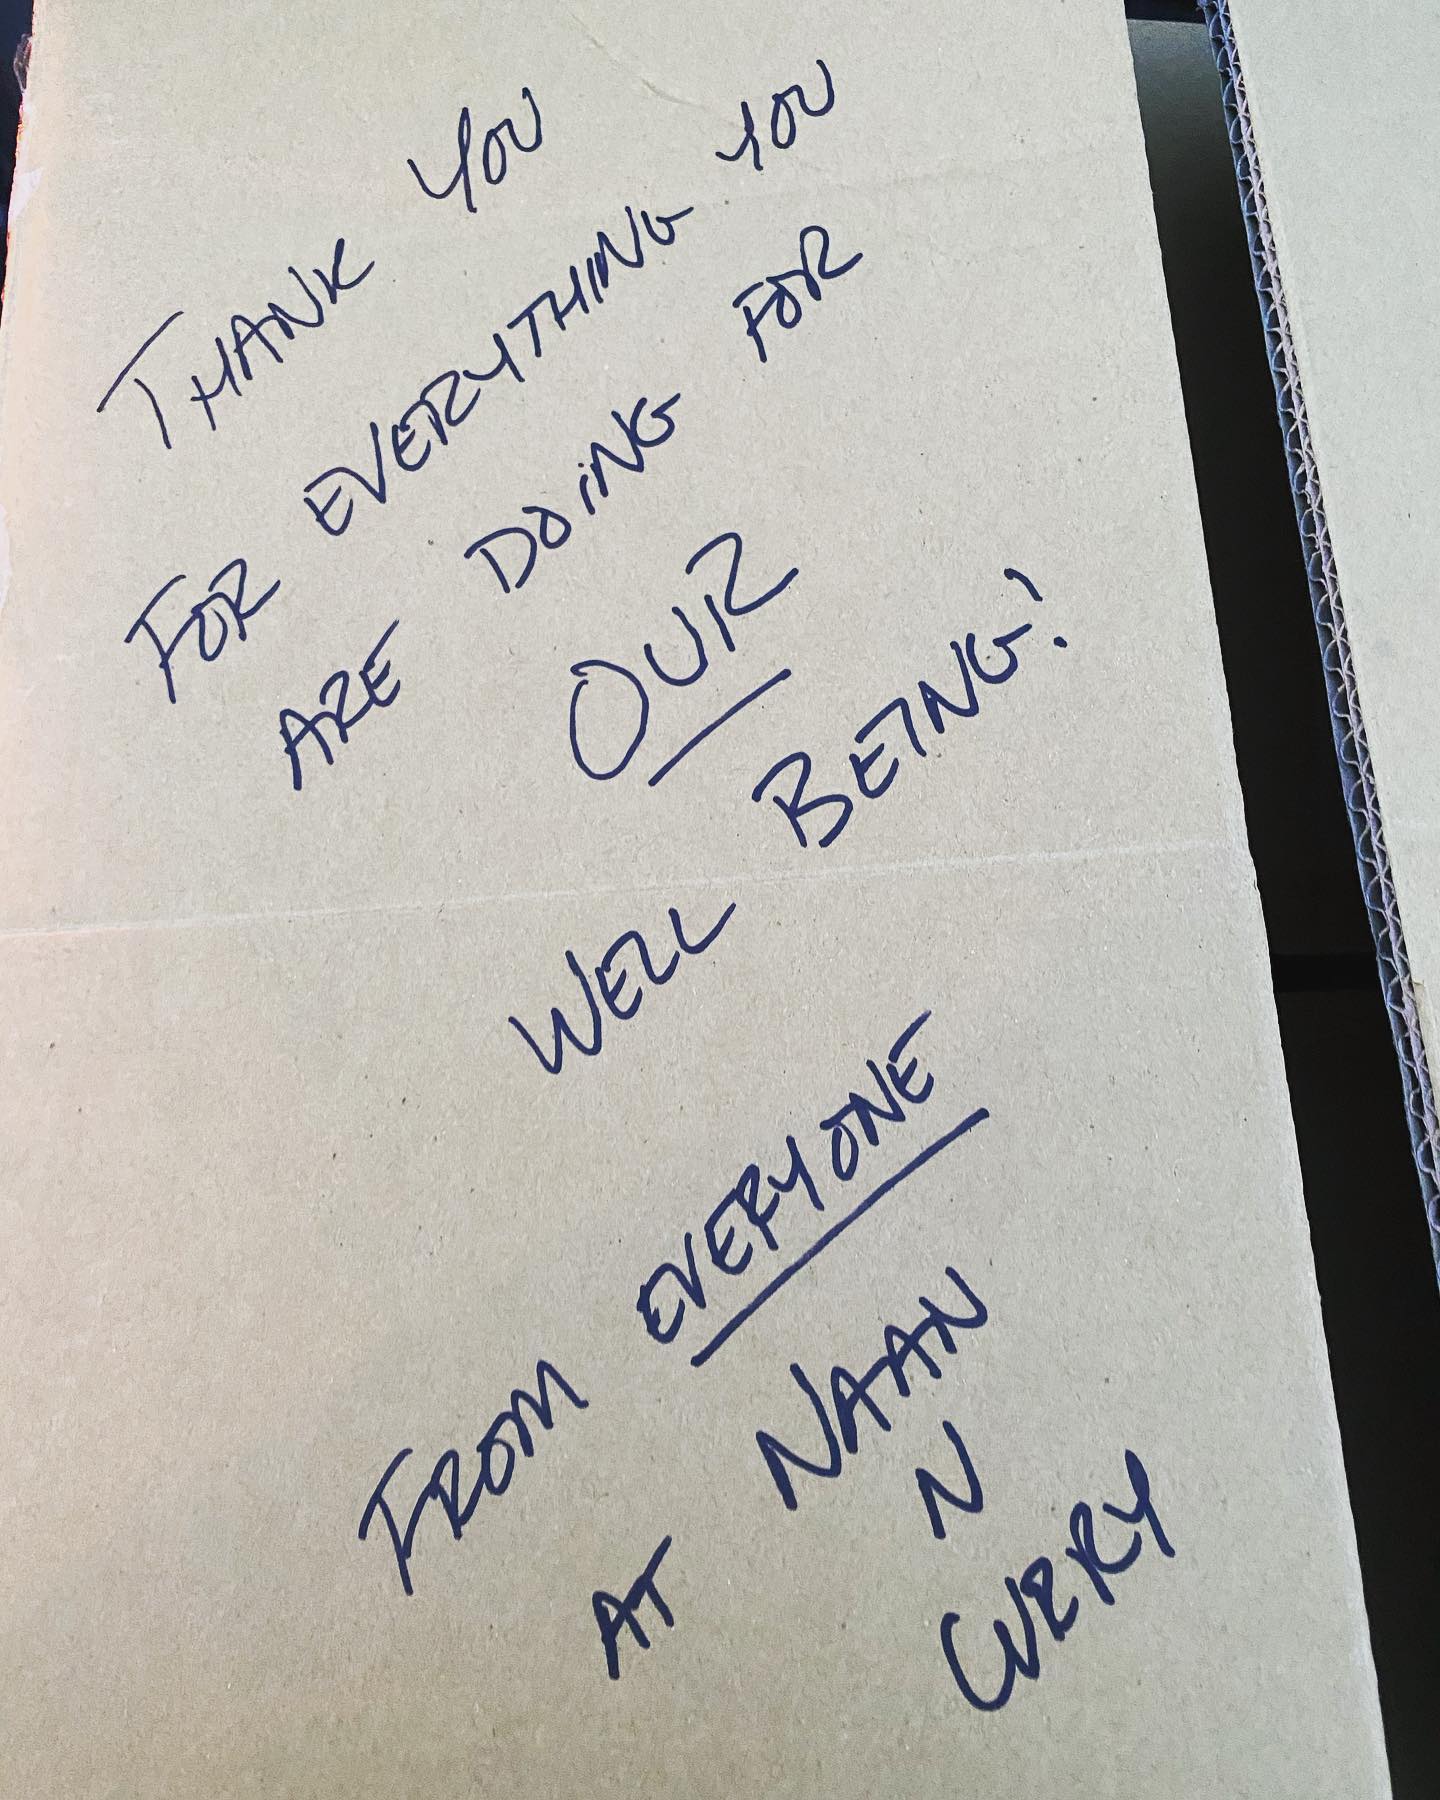 THANK YOU
FOR EVERYTHING YOU
ARE DOING FOR
OUR
WELL BEING!
FROM EVERYONE
AT NAAN
N
CURRY